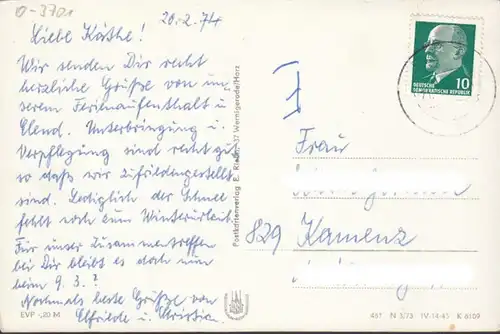 0-3701
20.2.74
Liebe Käthe!
Wir senden Dir recht
herzliche Grüße von un=
serem Ferienaufenthalt u
Elend. Unterbringung u.
Verpflegung sind recht gut
so daß wir zufriedengestellt
sind. Lediglich der Schnee
fehlt noch zum Winterurlaub.
Für unser Zusammentreffen
bei Dir bleibt es doch nun
beim 9.3.?
Nochmals beste Grüße von
Elfriede u. Christian
EVP -,20 M
Postkartenverlag E. Riehn, 37 Wernigerode/Harz
DEUTSCHE
DEMOKRATISCHE REPUBLIK
10
Frau
829 Kamenz
461 N 5/73 IV-14-45 K 6109